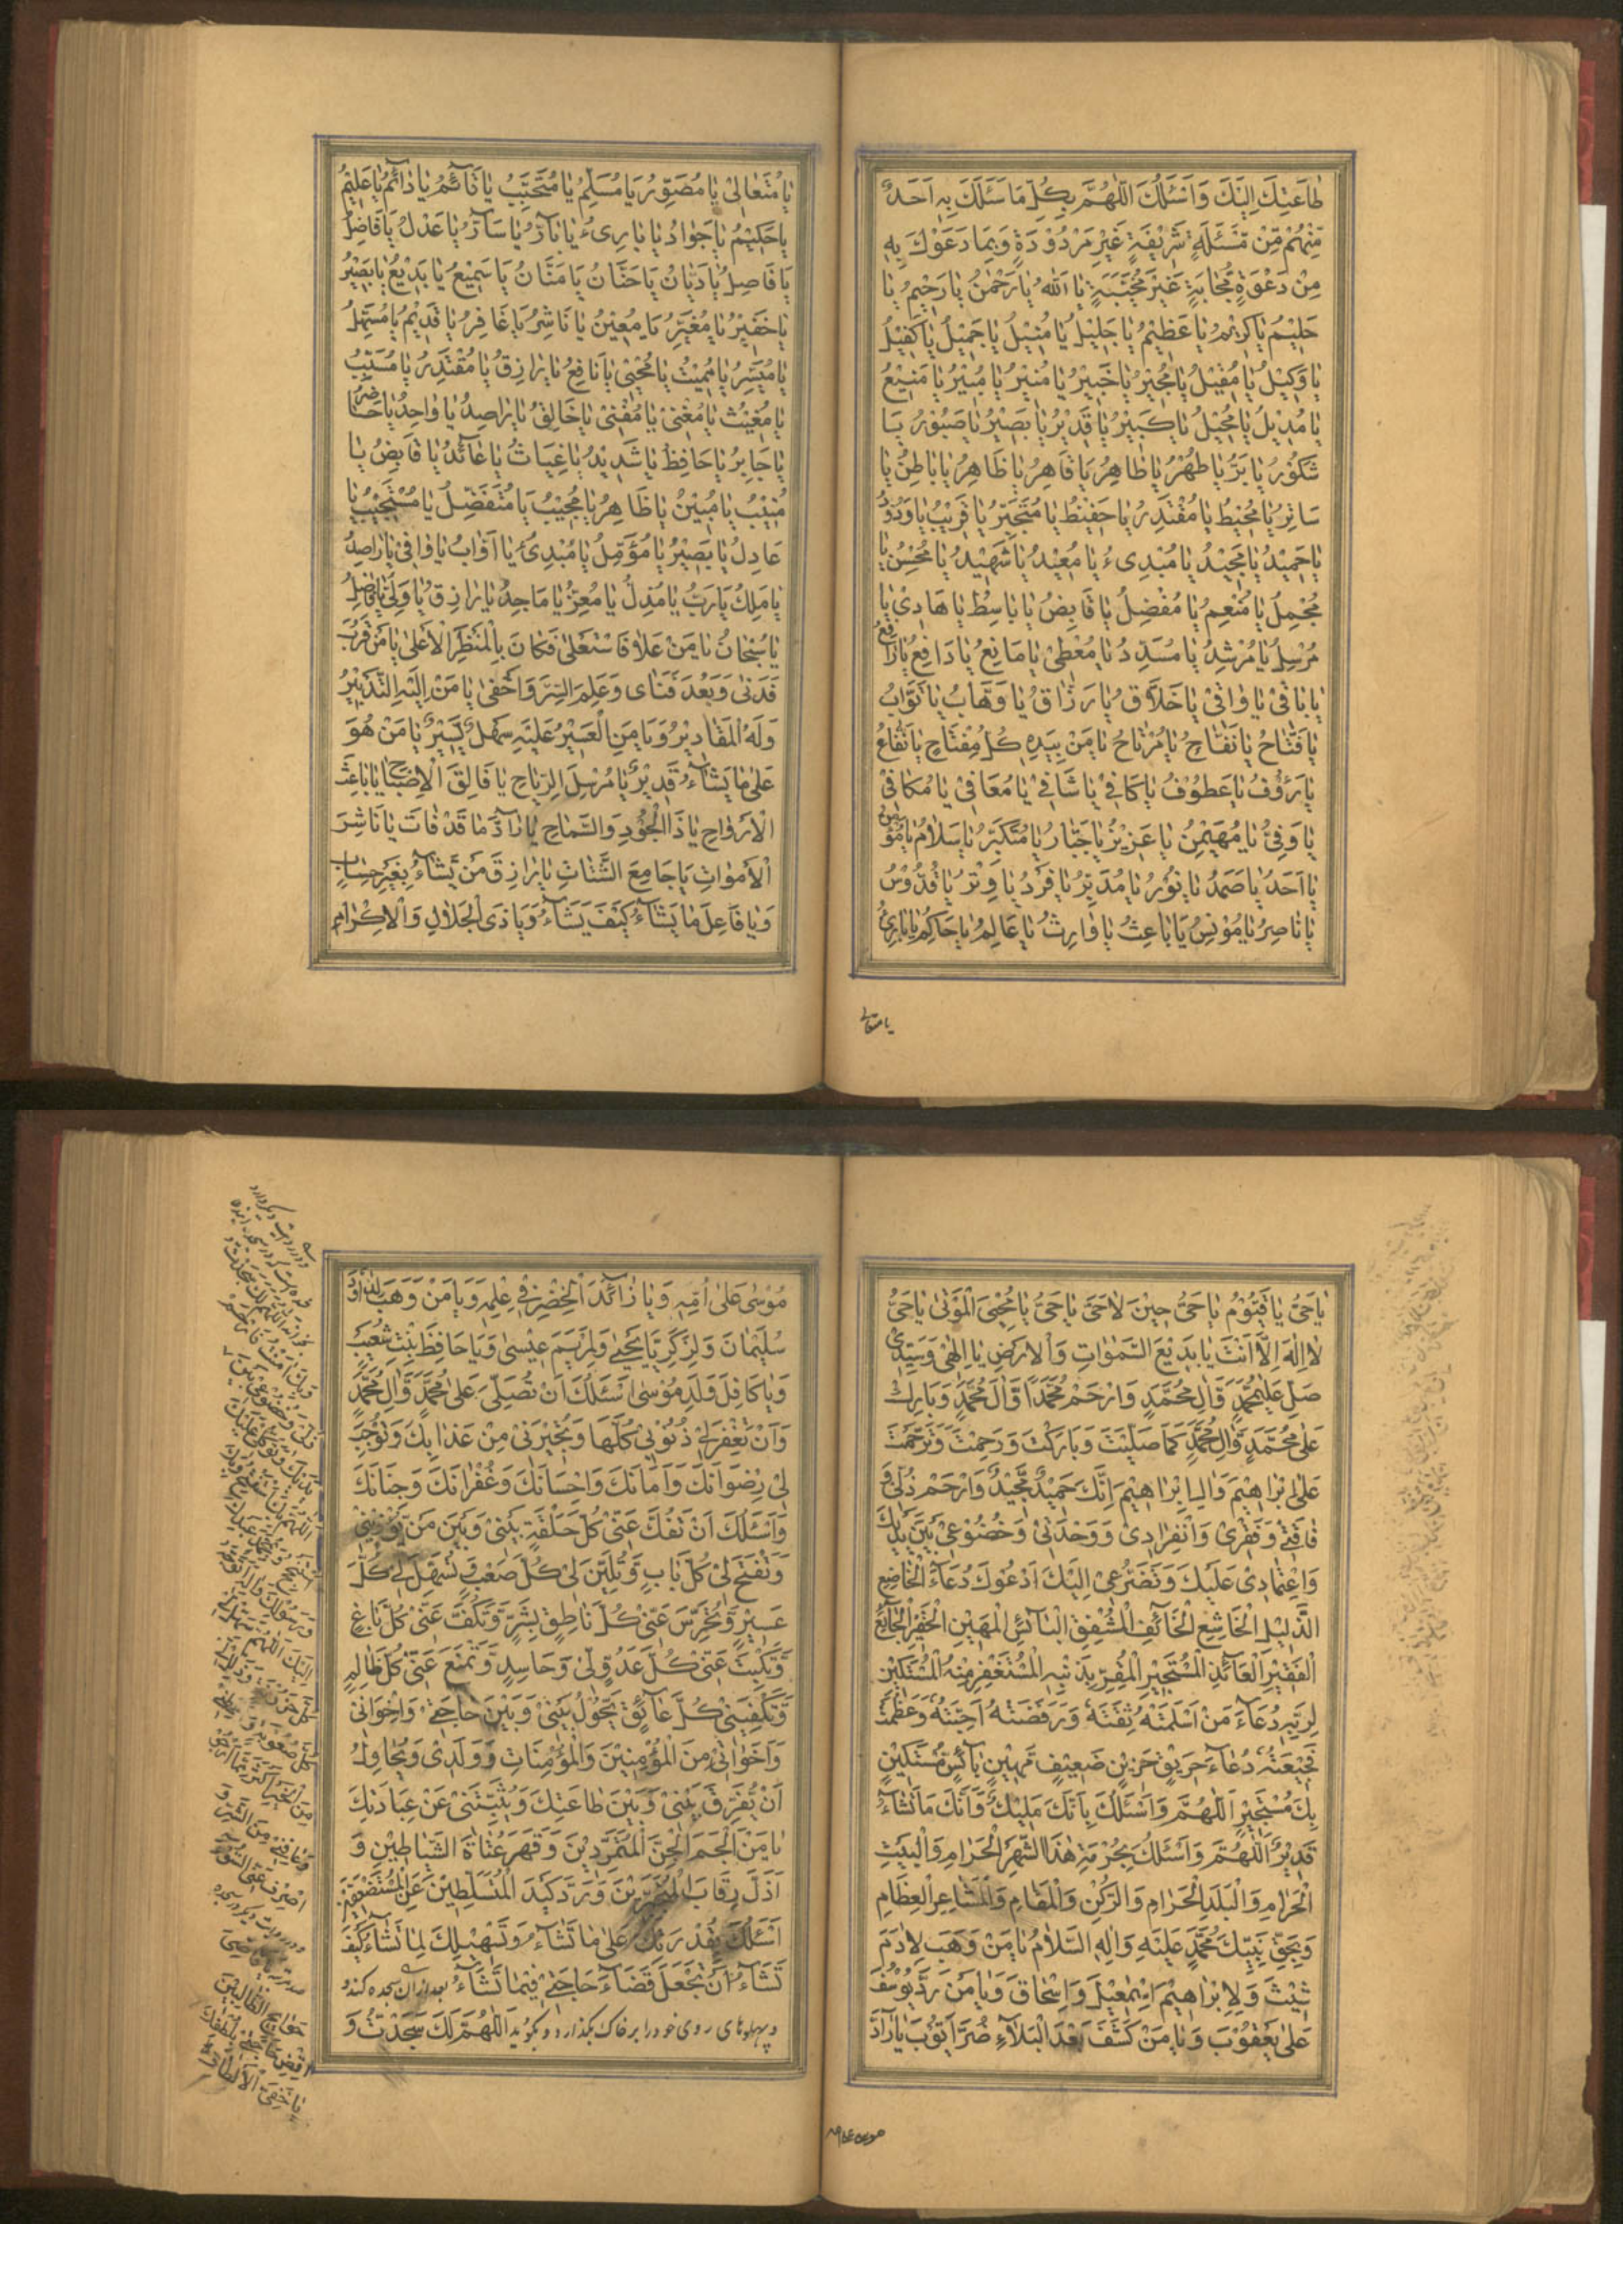 طَاعَتِكَ اِلَيْكَ وَاَسْئَلُكَ اَللّٰهُمَّ بِكُلِّ مَا سَئَلَكَ بِهِ اَحَدٌ
مِنْهُمْ مِنْ مَسْئَلَةٍ شَرِيْفَةٍ غَيْرِ مَرْدُوْدَةٍ وَبِمَا دَعَوْكَ بِهِ
مِنْ دَعْوَةٍ مُجَابَةٍ غَيْرِ مُخَيَّبَةٍ يَا اَللّٰهُ يَا رَحْمٰنُ يَا رَحِيْمُ يَا
حَلِيْمُ يَا كَرِيْمُ يَا عَظِيْمُ يَا جَلِيْلُ يَا مُنِيْلُ يَا جَمِيْلُ يَا كَفِيْلُ
يَا وَكِيْلُ يَا مُقِيْلُ يَا مُجِيْرُ يَا خَبِيْرُ يَا مُنِيْرُ يَا مُبِيْرُ يَا مَنِيْعُ
يَا مُدِيْلُ يَا مُحِيْلُ يَا كَبِيْرُ يَا قَدِيْرُ يَا بَصِيْرُ يَا صَبُوْرُ يَا
شَكُوْرُ يَا بَرُّ يَا طُهْرُ يَا طَاهِرُ يَا قَاهِرُ يَا ظَاهِرُ يَا بَاطِنُ يَا
سَاتِرُ يَا مُحِيْطُ يَا مُقْتَدِرُ يَا حَفِيْظُ يَا مُتَجَبِّرُ يَا قَرِيْبُ يَا وَدُوْدُ
يَا حَمِيْدُ يَا مَجِيْدُ يَا مُبْدِىءُ يَا مُعِيْدُ يَا شَهِيْدُ يَا مُحْسِنُ يَا
مُجْمِلُ يَا مُنْعِمُ يَا مُفْضِلُ يَا قَابِضُ يَا بَاسِطُ يَا هَادِىْ يَا
مُرْسِلُ يَا مُرْشِدُ يَا مُسَدِّدُ يَا مُعْطِىْ يَا مَانِعُ يَا دَافِعُ يَا رَافِعُ
يَا بَاقِىْ يَا وَاقِىْ يَا خَلَّاقُ يَا رَزَّاقُ يَا وَهَّابُ يَا تَوَّابُ
يَا فَتَّاحُ يَا نَفَّاحُ يَا مُرْتَاحُ يَا مَنْ بِيَدِهِ كُلُّ مِفْتَاحٍ يَا نَفَّاعُ
يَا رَؤُفُ يَا عَطُوْفُ يَا كَافِىْ يَا شَافِىْ يَا مُعَافِىْ يَا مُكَافِىْ
يَا وَفِىُّ يَا مُهَيْمِنُ يَا عَزِيْزُ يَا جَبَّارُ يَا مُتَكَبِّرُ يَا سَلَامُ يَا مُؤْمِنُ
يَا اَحَدُ يَا صَمَدُ يَا نُوْرُ يَا مُدَبِّرُ يَا فَرْدُ يَا وِتْرُ يَا قُدُّوْسُ
يَا نَاصِرُ يَا مُوْنِسُ يَا بَاعِثُ يَا وَارِثُ يَا عَالِمُ يَا حَاكِمُ يَا بَارِئُ
يا متعالى
يَا مُتَعَالِىْ يَا مُصَوِّرُ يَا مُسَلِّمُ يَا مُتَحَبِّبُ يَا قَائِمُ يَا دَائِمُ يَا عَلِيْمُ
يَا حَكِيْمُ يَا جَوَادُ يَا بَارِىءُ يَا بَارُّ يَا سَارُّ يَا عَدْلُ يَا فَاضِلُ
يَا فَاصِلُ يَا دَيَّانُ يَا حَنَّانُ يَا مَنَّانُ يَا سَمِيْعُ يَا بَدِيْعُ يَا بَصِيْرُ
يَا خَفِيْرُ يَا مُغَيِّرُ يَا مُعِيْنُ يَا نَاشِرُ يَا غَافِرُ يَا قَدِيْمُ يَا مُسَهِّلُ
يَا مُيَسِّرُ يَا مُمِيْتُ يَا مُحْيِىْ يَا نَافِعُ يَا رَازِقُ يَا مُقْتَدِرُ يَا مُسَبِّبُ
يَا مُغِيْثُ يَا مُغْنِىْ يَا مُقْنِىْ يَا خَالِقُ يَا رَاصِدُ يَا وَاحِدُ يَا حَاضِرُ
يَا جَابِرُ يَا حَافِظُ يَا شَدِيْدُ يَا غِيَاثُ يَا عَائِدُ يَا قَابِضُ يَا
مُنِيْبُ يَا مُبِيْنُ يَا ظَاهِرُ يَا مُجِيْبُ يَا مُتَفَضِّلُ يَا مُسْتَجِيْبُ يَا
عَادِلُ يَا بَصِيْرُ يَا مُؤَمَّلُ يَا مُبْدِئُ يَا اَوَّابُ يَا وَافِىْ يَا رَاصِدُ
يَا مَلِكُ يَا رَبُّ يَا مُذِلُّ يَا مُعِزُّ يَا مَاجِدُ يَا رَازِقُ يَا وَلِىُّ يَا فَاضِلُ
يَا سُبْحَانُ يَا مَنْ عَلَا فَاسْتَعْلٰى فَكَانَ بِالْمَنْظَرِ الْاَعْلٰى يَا مَنْ قَرُبَ
فَدَنٰى وَبَعُدَ فَنَاٰى وَعَلِمَ السِّرَّ وَاَخْفٰى يَا مَنْ اِلَيْهِ التَّدْبِيْرُ
وَلَهُ الْمَقَادِيْرُ وَيَا مَنِ الْعَسِيْرُ عَلَيْهِ سَهْلٌ يَسِيْرٌ يَا مَنْ هُوَ
عَلٰى مَا يَشَاءُ قَدِيْرٌ يَا مُرْسِلَ الرِّيَاحِ يَا فَالِقَ الْاِصْبَاحِ يَا بَاعِثَ
الْاَرْوَاحِ يَا ذَا الْجُوْدِ وَالسَّمَاحِ يَا رَادَّ مَا قَدْ فَاتَ يَا نَاشِرَ
الْاَمْوَاتِ يَا جَامِعَ الشَّتَاتِ يَا رَازِقَ مَنْ يَشَاءُ بِغَيْرِ حِسَابٍ
وَيَا فَاعِلَ مَا يَشَاءُ كَيْفَ يَشَاءُ وَيَا ذَى الْجَلَالِ وَالْاِكْرَامِ
يَا حَىُّ يَا قَيُّوْمُ يَا حَىُّ حِيْنَ لَا حَىَّ يَا حَىُّ يَا مُحْيِىَ الْمَوْتٰى يَا حَىُّ
لَا اِلٰهَ اِلَّا اَنْتَ يَا بَدِيْعَ السَّمٰوَاتِ وَالْاَرْضِ يَا اِلٰهِىْ وَسَيِّدِىْ
صَلِّ عَلٰى مُحَمَّدٍ وَّاٰلِ مُحَمَّدٍ وَارْحَمْ مُحَمَّدًا وَّاٰلَ مُحَمَّدٍ وَبَارِكْ
عَلٰى مُحَمَّدٍ وَّاٰلِ مُحَمَّدٍ كَمَا صَلَّيْتَ وَبَارَكْتَ وَرَحِمْتَ وَتَرَحَّمْتَ
عَلٰى اِبْرَاهِيْمَ وَاٰلِ اِبْرَاهِيْمَ اِنَّكَ حَمِيْدٌ مَّجِيْدٌ وَارْحَمْ ذُلِّىْ وَ
فَاقَتِىْ وَفَقْرِىْ وَانْفِرَادِىْ وَوَحْدَتِىْ وَخُضُوْعِىْ بَيْنَ يَدَيْكَ
وَاعْتِمَادِىْ عَلَيْكَ وَتَضَرُّعِىْ اِلَيْكَ اَدْعُوْكَ دُعَاءَ الْخَاضِعِ
الذَّلِيْلِ الْخَاشِعِ الْخَائِفِ الْمُشْفِقِ الْبَائِسِ الْمَهِيْنِ الْحَقِيْرِ الْجَائِعِ
الْفَقِيْرِ الْعَائِذِ الْمُسْتَجِيْرِ الْمُقِرِّ بِذَنْبِهِ الْمُسْتَغْفِرِ مِنْهُ الْمُسْتَكِيْنِ
لِرَبِّهِ دُعَاءَ مَنْ اَسْلَمَتْهُ ثِقَتُهُ وَرَفَضَتْهُ اَحِبَّتُهُ وَعَظُمَتْ
فَجِيْعَتُهُ دُعَاءَ حَرِيْقٍ حَزِيْنٍ ضَعِيْفٍ مَهِيْنٍ بَائِسٍ مُسْتَكِيْنٍ
بِكَ مُسْتَجِيْرٍ اَللّٰهُمَّ وَاَسْئَلُكَ بِاَنَّكَ مَلِيْكٌ وَاَنَّكَ مَا تَشَاءُ
قَدِيْرٌ اَللّٰهُمَّ وَاَسْئَلُكَ بِحُرْمَةِ هٰذَا الشَّهْرِ الْحَرَامِ وَالْبَيْتِ
الْحَرَامِ وَالْبَلَدِ الْحَرَامِ وَالرُّكْنِ وَالْمَقَامِ وَالْمَشَاعِرِ الْعِظَامِ
وَبِحَقِّ نَبِيِّكَ مُحَمَّدٍ عَلَيْهِ وَاٰلِهِ السَّلَامُ يَا مَنْ وَهَبَ لِاٰدَمَ
شِيْثَ وَلِاِبْرَاهِيْمَ اِسْمٰعِيْلَ وَاِسْحَاقَ وَيَا مَنْ رَدَّ يُوْسُفَ
عَلٰى يَعْقُوْبَ وَيَا مَنْ كَشَفَ بَعْدَ الْبَلَاءِ ضُرَّ اَيُّوْبَ يَا رَادَّ
موسى على امه
مُوْسٰى عَلٰى اُمِّهِ وَيَا زَائِدَ الْخِضْرِ فِىْ عِلْمِهِ وَيَا مَنْ وَهَبَ لِدَاوٗدَ
سُلَيْمَانَ وَلِزَكَرِيَّا يَحْيٰى وَلِمَرْيَمَ عِيْسٰى وَيَا حَافِظَ بِنْتِ شُعَيْبَ
وَيَا كَافِلَ وَلَدِ مُوْسٰى اَسْئَلُكَ اَنْ تُصَلِّىَ عَلٰى مُحَمَّدٍ وَّاٰلِ مُحَمَّدٍ
وَاَنْ تَغْفِرَ لِىْ ذُنُوْبِىْ كُلَّهَا وَتُجِيْرَنِىْ مِنْ عَذَابِكَ وَتُوْجِبَ
لِىْ رِضْوَانَكَ وَاَمَانَكَ وَاِحْسَانَكَ وَغُفْرَانَكَ وَجِنَانَكَ
وَاَسْئَلُكَ اَنْ تَفُكَّ عَنِّىْ كُلَّ حَلْقَةٍ بَيْنِىْ وَبَيْنَ مَنْ يُؤْذِيْنِىْ
وَتَفْتَحَ لِىْ كُلَّ بَابٍ وَّتُلَيِّنَ لِىْ كُلَّ صَعْبٍ وَّتُسَهِّلَ لِىْ كُلَّ
عَسِيْرٍ وَّتُخْرِسَ عَنِّىْ كُلَّ نَاطِقٍ بِشَرٍّ وَّتَكُفَّ عَنِّىْ كُلَّ بَاغٍ
وَّتَكْبِتَ عَنِّىْ كُلَّ عَدُوٍّ لِىْ وَحَاسِدٍ وَّتَمْنَعَ عَنِّىْ كُلَّ ظَالِمٍ
وَّتَكْفِيَنِىْ كُلَّ عَائِقٍ يَحُوْلُ بَيْنِىْ وَبَيْنَ حَاجَتِىْ وَاِخْوَانِىْ
وَاَخَوَاتِىْ مِنَ الْمُؤْمِنِيْنَ وَالْمُؤْمِنَاتِ وَوَلَدِىْ وَيُحَاوِلُ
اَنْ يُفَرِّقَ بَيْنِىْ وَبَيْنَ طَاعَتِكَ وَيُثَبِّطَنِىْ عَنْ عِبَادَتِكَ
يَا مَنْ اَلْجَمَ الْجِنَّ الْمُتَمَرِّدِيْنَ وَقَهَرَ عُتَاةَ الشَّيَاطِيْنِ وَ
اَذَلَّ رِقَابَ الْمُتَجَبِّرِيْنَ وَرَدَّ كَيْدَ الْمُتَسَلِّطِيْنَ عَنِ الْمُسْتَضْعَفِيْنَ
اَسْئَلُكَ بِقُدْرَتِكَ عَلٰى مَا تَشَاءُ وَتَسْهِيْلِكَ لِمَا تَشَاءُ كَيْفَ
تَشَاءُ اَنْ تَجْعَلَ قَضَاءَ حَاجَتِىْ فِيْمَا تَشَاءُ بعد ازان سجده کند و
و پهلوهای روی خود را بر خاک بگذارد و بگوید اَللّٰهُمَّ لَكَ سَجَدْتُ وَ